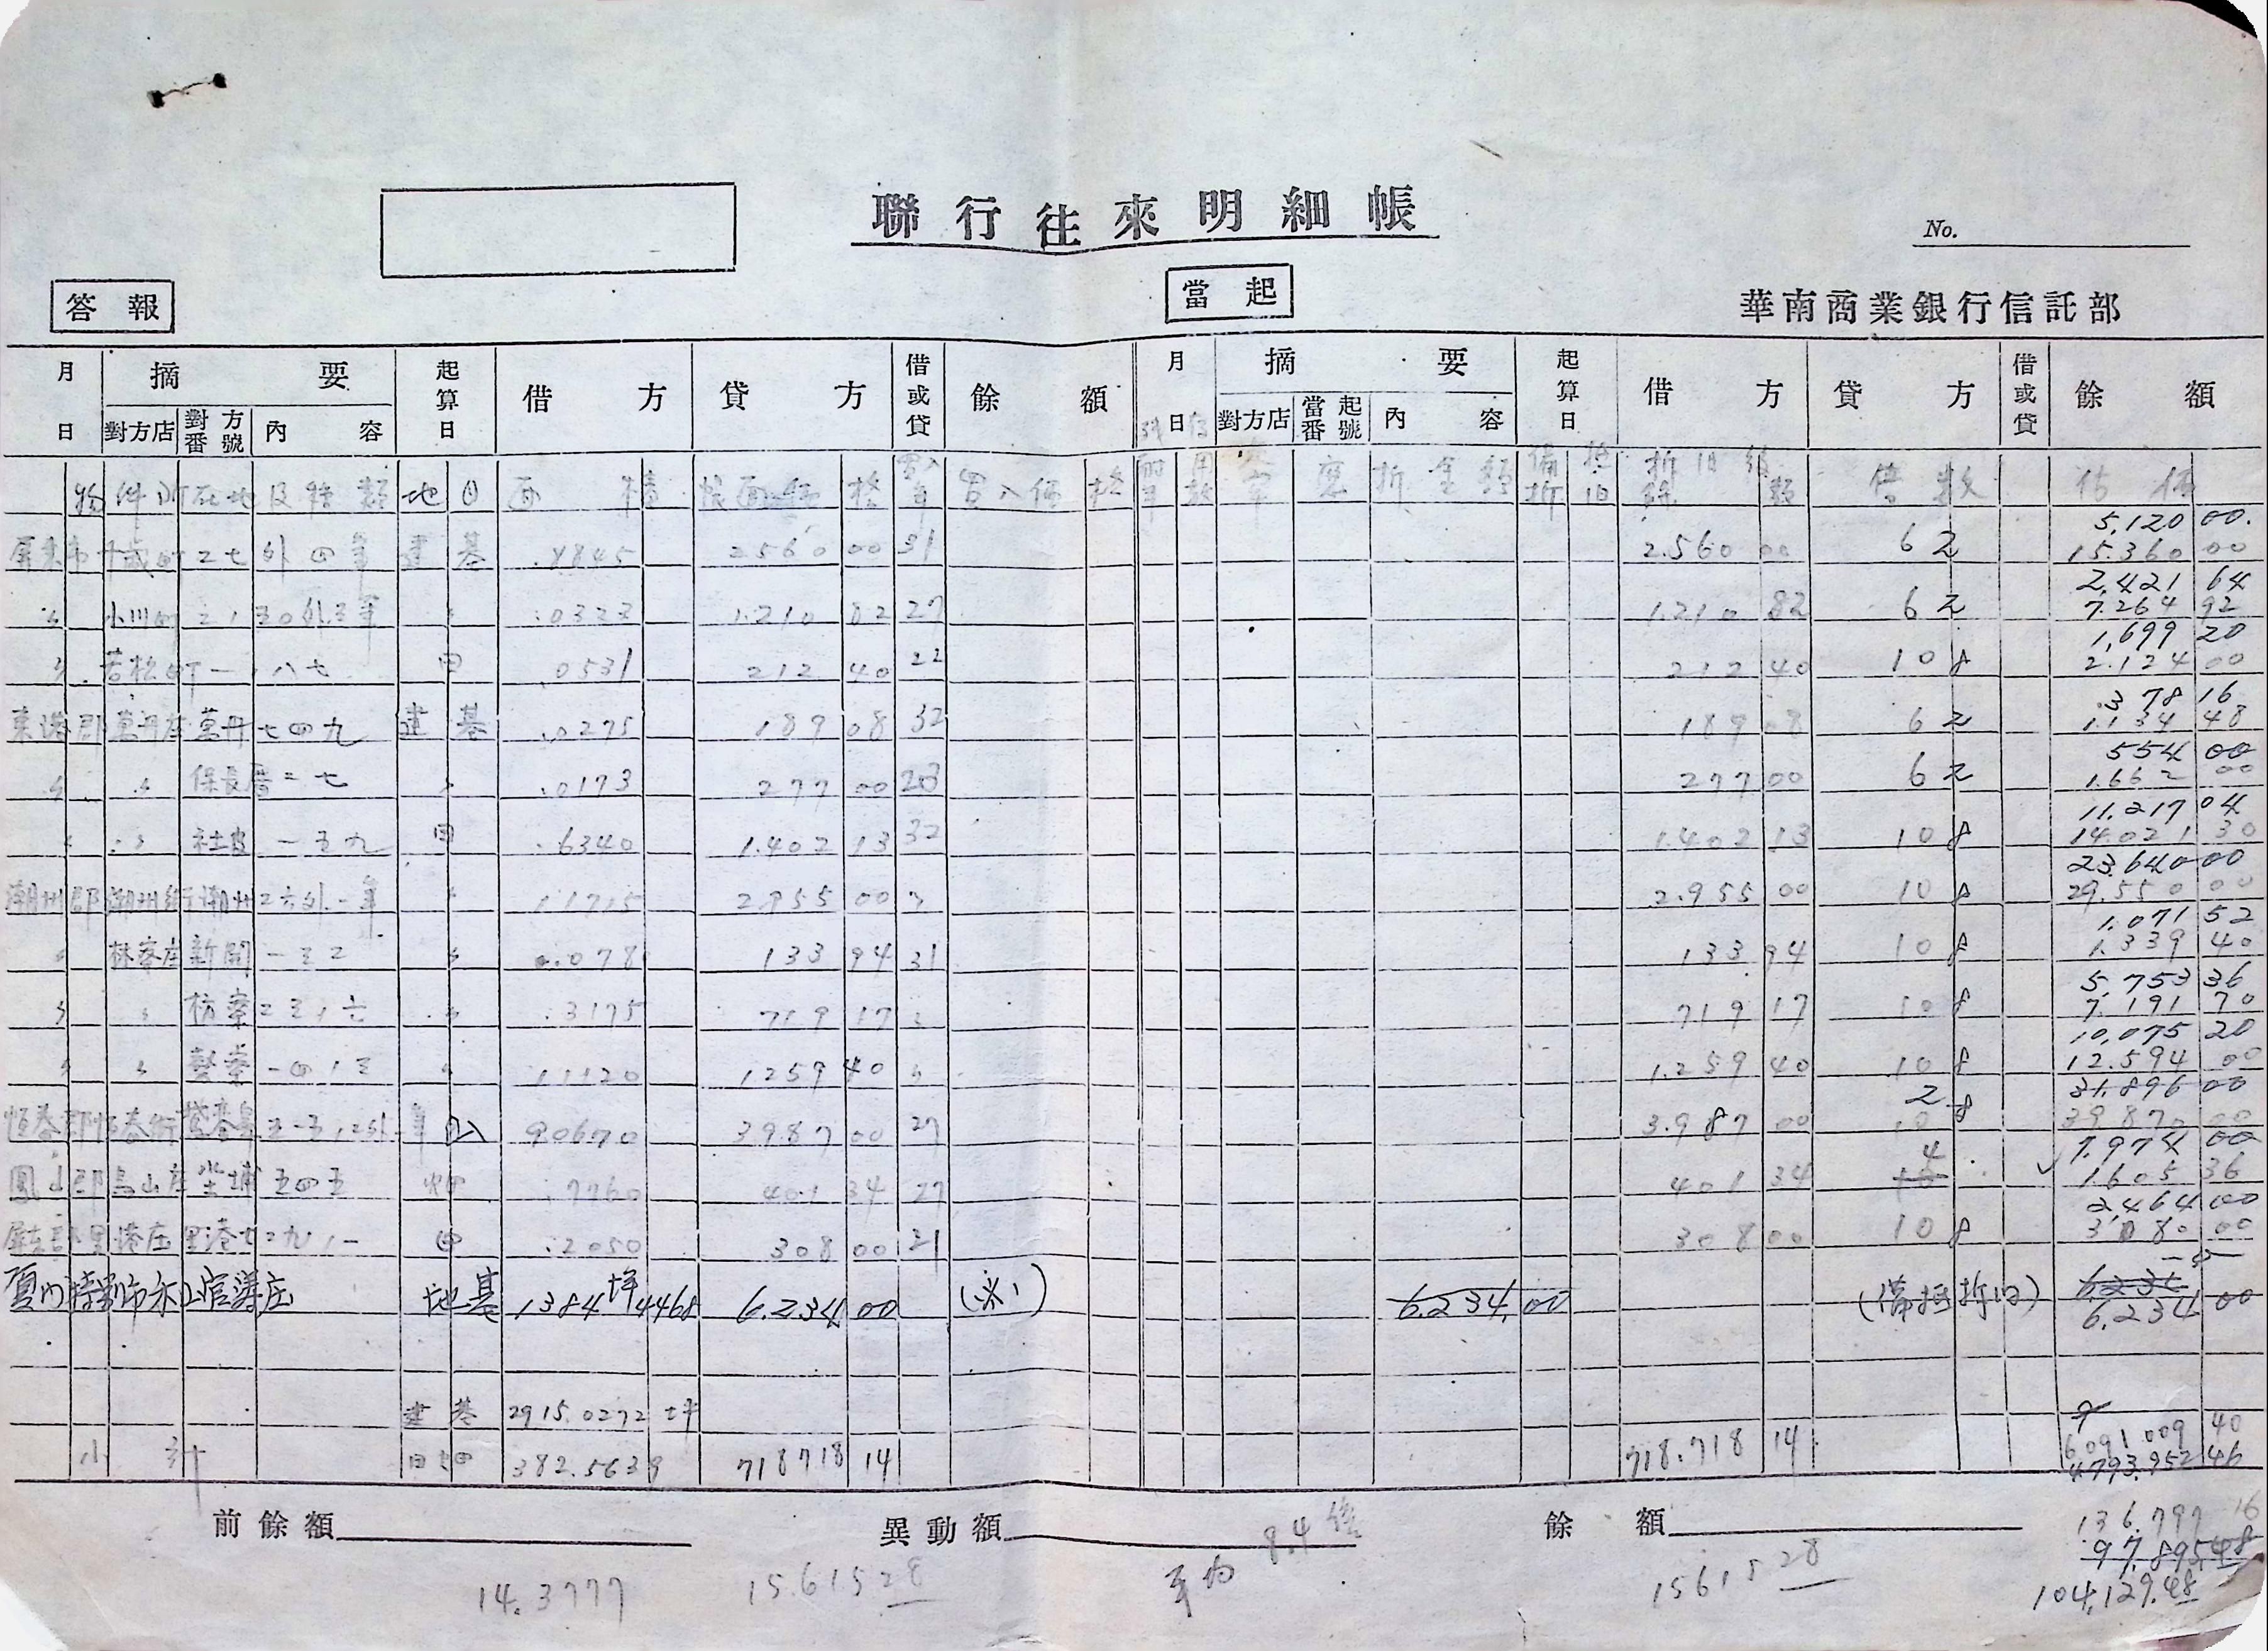 聯行往來明細帳
No.
答報
當起
華南商業銀行信託部
月日 摘要 起算日 借方 貸方 借或貸 餘額 月日 摘要 起算日 借方 貸方 借或貸 餘額
對方店 對方番號 內容 對方店 當起番號 內容
物件所在地及種類 地目 面積 帳面價格 買入年 買入価格 耐用年数 金額 倍数 估価
5,120 00.
屏東市 末 町二七外四筆 建基 .8845 2560 00 31 2.560 00 6 2 15.360 00
2,421 64
〃 小川町 二,五〇外三筆 〃 .0323 1.210 82 27 1.210 82 6 2 7.264 92
1,699 20
〃 若松町一,八七 田 .0531 212 40 22 212 40 10 8 2.124 00
378 16
東港郡萬丹庄萬丹七四九 建基 .0275 189 08 32 189 08 6 2 1.134 48
554 00
〃 〃 保長厝二七 〃 .0173 277 00 23 277 00 6 2 1.662 00
11.217 04
〃 〃 社皮 一五九 田 .6340 1.402 13 32 1.402 13 10 8 14.021 30
23.640 00
潮州郡潮州街潮州二六外一筆 〃 1.1715 2955 00 〃 2.955 00 10 8 29.550 00
1.071 52
〃 林寮庄新開 一三二 〃 0.078 133 94 31 133 94 10 8 1.339 40
5,753 36
〃 〃 枋寮二三,六 〃 .3175 719 17 〃 719 17 10 8 7.191 70
10,075 20
〃 〃 寮一四,三 〃 1.1120 1259 40 〃 1.259 40 10 8 12.594 00
31.896 00
恆春郡恆春街 五一五,二外一筆 山 9.0670 3987 00 27 3.987 00 10 2 8 39.870 00
7.974 00
鳳山郡鳥山庄 埔五四五 畑 .7760 401 34 27 401 34 10 4 1.605 36
2,464 00
屏東郡里港庄里港七二九,一 田 .2050 308 00 31 308 00 10 8 3.080 00
厦门特别市禾山官潯庄 地基 1384坪4468 6.234 00 (※1) 6.234.00 (備抵折旧) 6.234 00
建基 2915.0272 坪
6,091.009 40
小計 田畑 382.5639 718718 14 718.718 14 4793.952 46
前餘額 異動額 餘額
136.797 16
97.895.48
14.3777 15.615 28 平均 8.4倍 15615 28 104,129.48